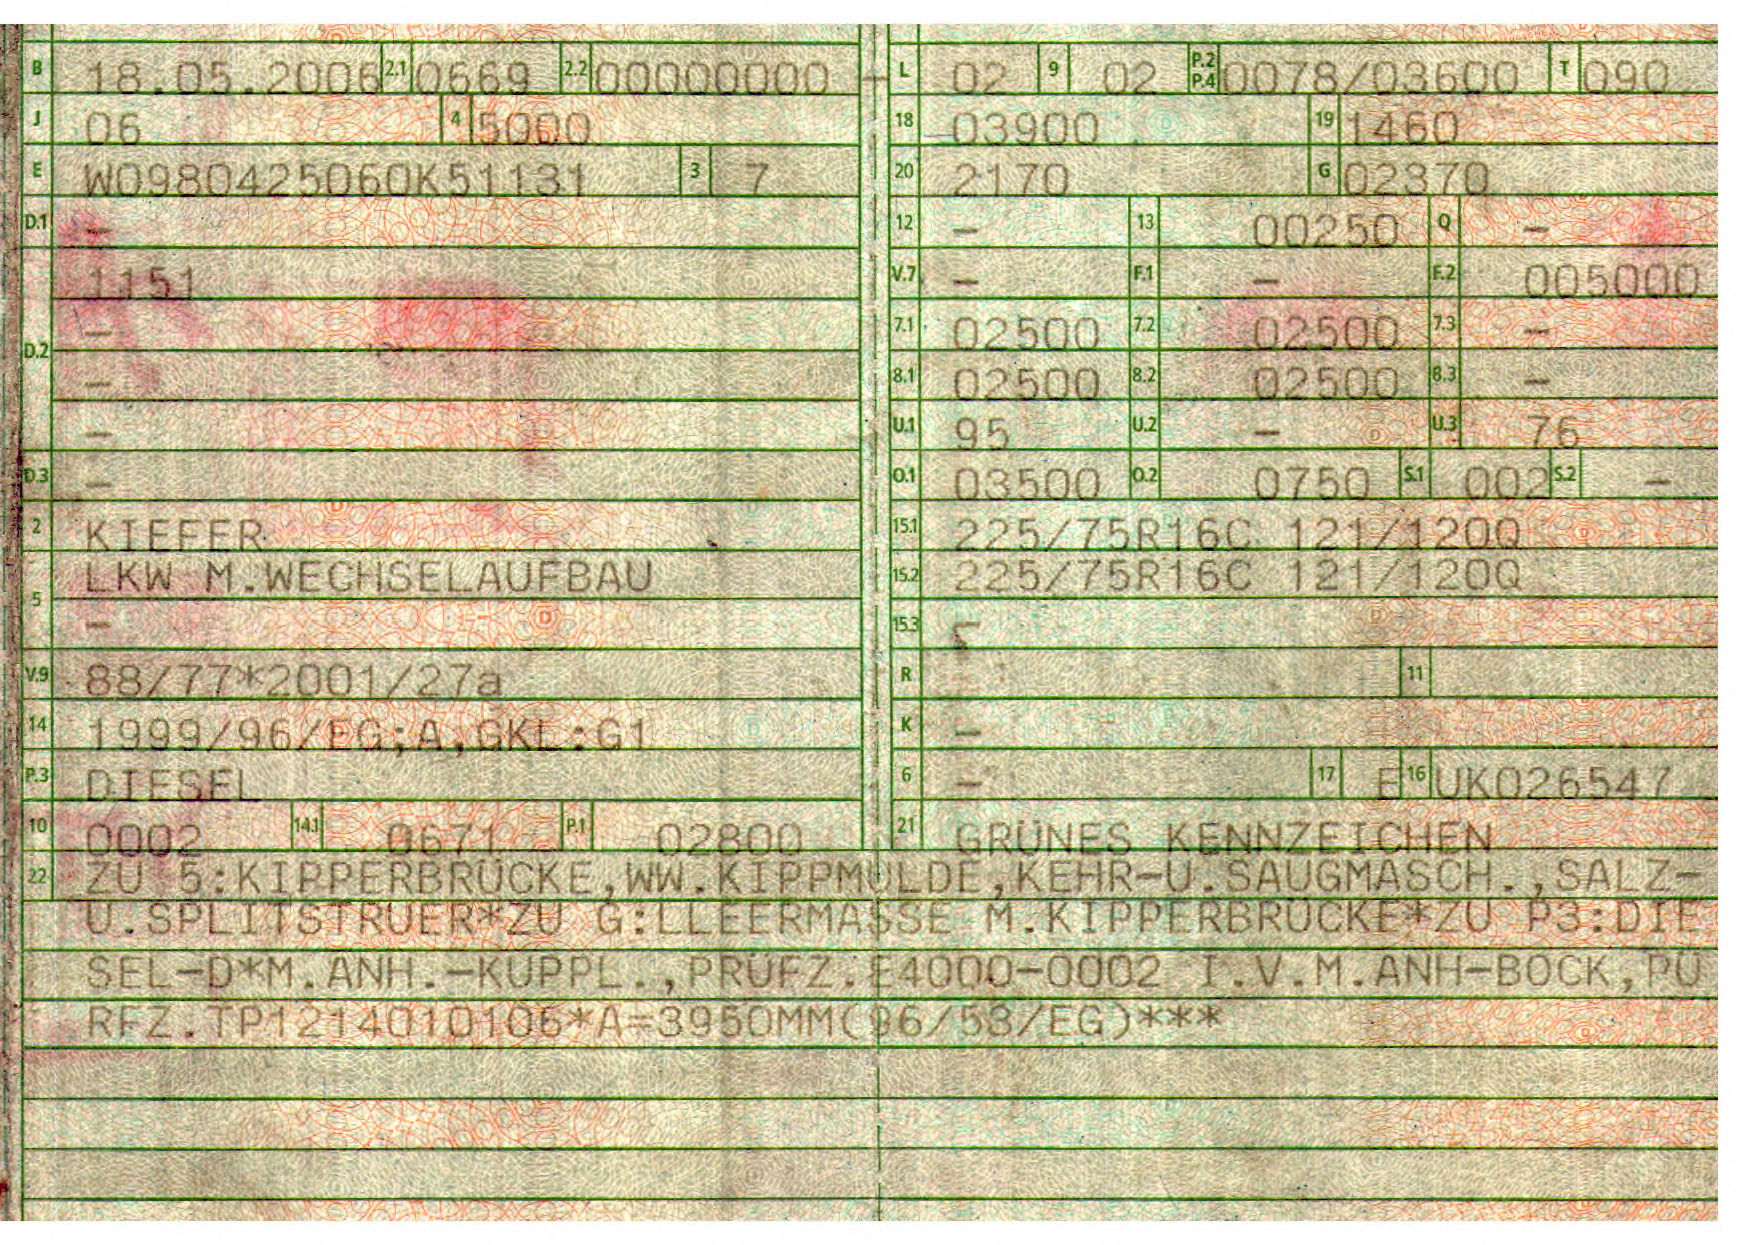 B 18.05.2006 2.1 0669 2.2 00000000 –
J 06 4 5000
E W0980425060K51131 3 7
D.1 –
1151
D.2 –
–
–
D.3 –
2 KIEFER
5 LKW M.WECHSELAUFBAU
–
V.9 88/77*2001/27a
14 1999/96/EG;A,GKL:G1
P.3 DIESEL
10 0002 14.1 0671 P.1 02800
L 02 9 02 P.2 P.4 0078/03600 T 090
18 03900 19 1460
20 2170 G 02370
12 – 13 00250 Q –
V.7 – F.1 – F.2 005000
7.1 02500 7.2 02500 7.3 –
8.1 02500 8.2 02500 8.3 –
U.1 95 U.2 – U.3 76
O.1 03500 O.2 0750 S.1 002 S.2 –
15.1 225/75R16C 121/120Q
15.2 225/75R16C 121/120Q
15.3 –
R 11
K –
6 – 17 E 16 UK026547
21 GRÜNES KENNZEICHEN
22 ZU 5:KIPPERBRÜCKE,WW.KIPPMULDE,KEHR-U.SAUGMASCH.,SALZ-
U.SPLITSTRUER*ZU G:LLEERMASSE M.KIPPERBRÜCKE*ZU P3:DIE
SEL-D*M.ANH.-KUPPL.,PRÜFZ.E4000-0002 I.V.M.ANH-BOCK,PÜ
RFZ.TP1214010106*A=3950MM(96/53/EG)***